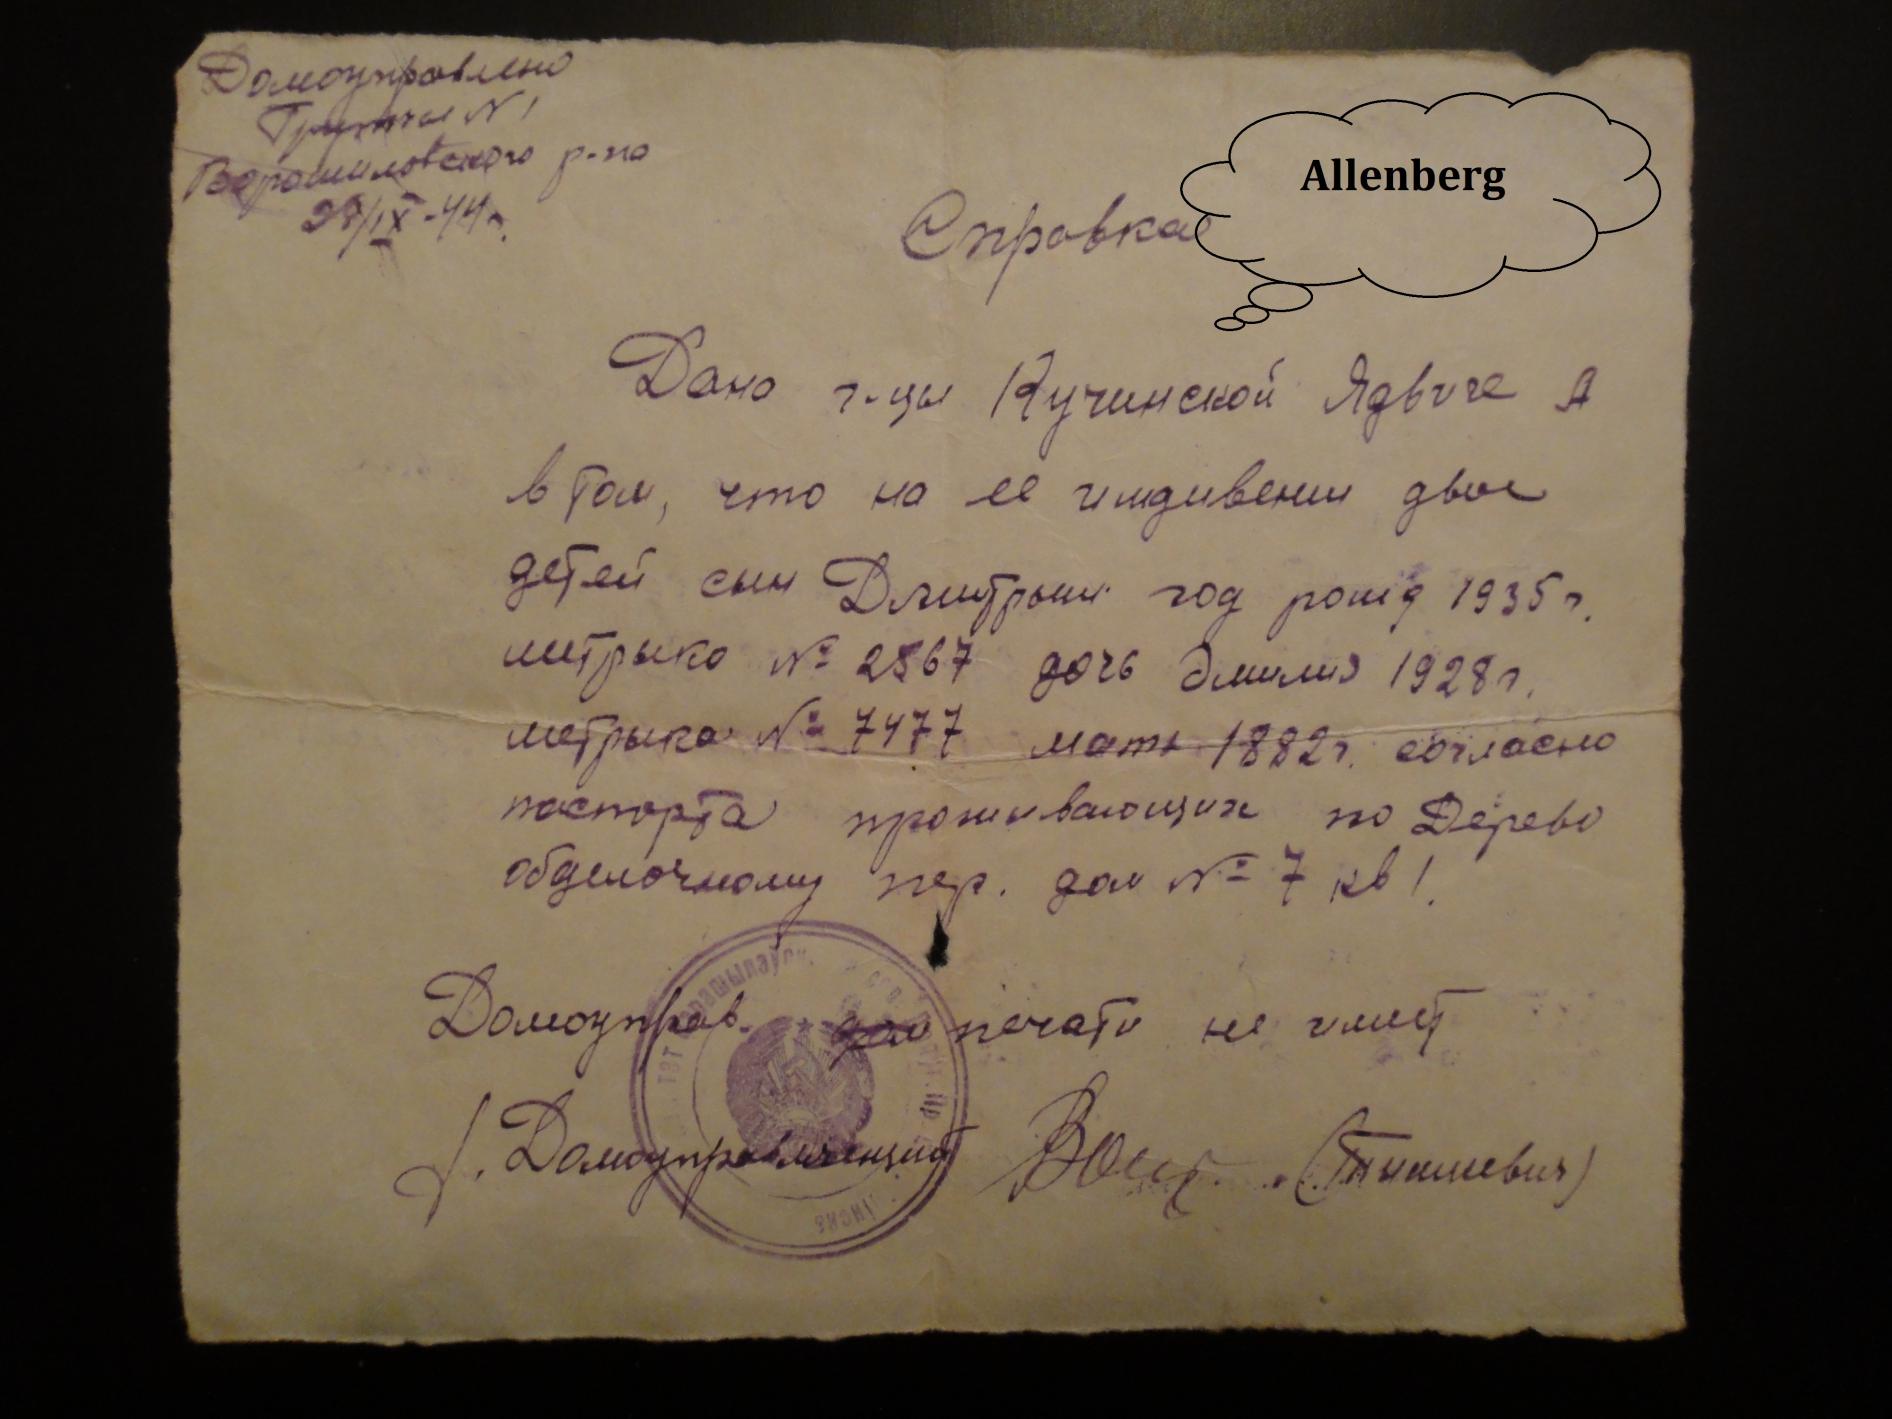 Домоуправлено
Группы № 1
Ворошиловского р-на
28/IX-44г.
Allenberg
Справка
Дана г-цы Кучинской Ядвиге А
в том, что на ее иждивении двое
детей сын Дмитрыи год рожд 1935 г.
митрыка № 2567 дочь Эмилия 1928 г.
метрыка № 7477 мать 1882 г. согласно
паспорта проживающих по Дерево
обделочному пер. дом № 7 кв 1.
Домоуправ. дом печати не имеет
Домоуправляющий (Тышкевич)